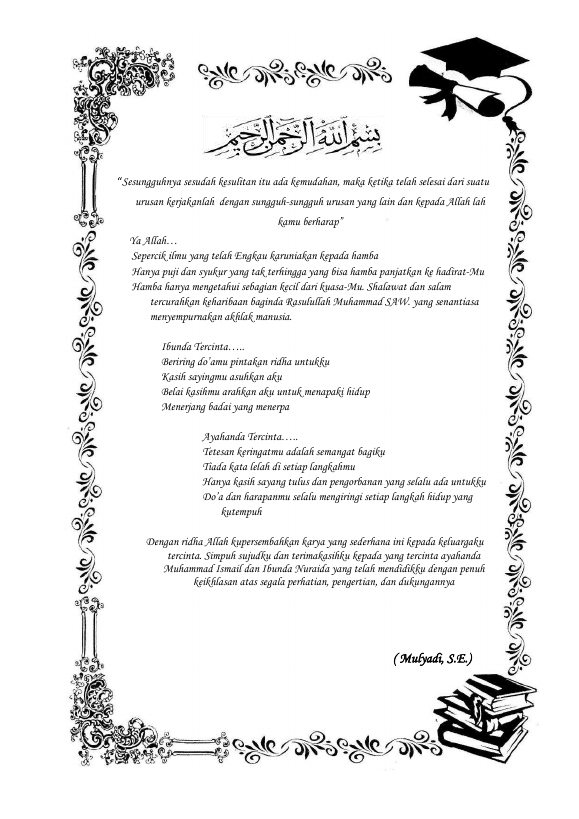 بسم الله الرحمن الرحيم
“Sesungguhnya sesudah kesulitan itu ada kemudahan, maka ketika telah selesai dari suatu
urusan kerjakanlah dengan sungguh-sungguh urusan yang lain dan kepada Allah lah
kamu berharap”
Ya Allah…
Sepercik ilmu yang telah Engkau karuniakan kepada hamba
Hanya puji dan syukur yang tak terhingga yang bisa hamba panjatkan ke hadirat-Mu
Hamba hanya mengetahui sebagian kecil dari kuasa-Mu. Shalawat dan salam
tercurahkan keharibaan baginda Rasulullah Muhammad SAW. yang senantiasa
menyempurnakan akhlak manusia.
Ibunda Tercinta…..
Beriring do’amu pintakan ridha untukku
Kasih sayingmu asuhkan aku
Belai kasihmu arahkan aku untuk menapaki hidup
Menerjang badai yang menerpa
Ayahanda Tercinta…..
Tetesan keringatmu adalah semangat bagiku
Tiada kata lelah di setiap langkahmu
Hanya kasih sayang tulus dan pengorbanan yang selalu ada untukku
Do’a dan harapanmu selalu mengiringi setiap langkah hidup yang
kutempuh
Dengan ridha Allah kupersembahkan karya yang sederhana ini kepada keluargaku
tercinta. Simpuh sujudku dan terimakasihku kepada yang tercinta ayahanda
Muhammad Ismail dan Ibunda Nuraida yang telah mendidikku dengan penuh
keikhlasan atas segala perhatian, pengertian, dan dukungannya
( Mulyadi, S.E.)